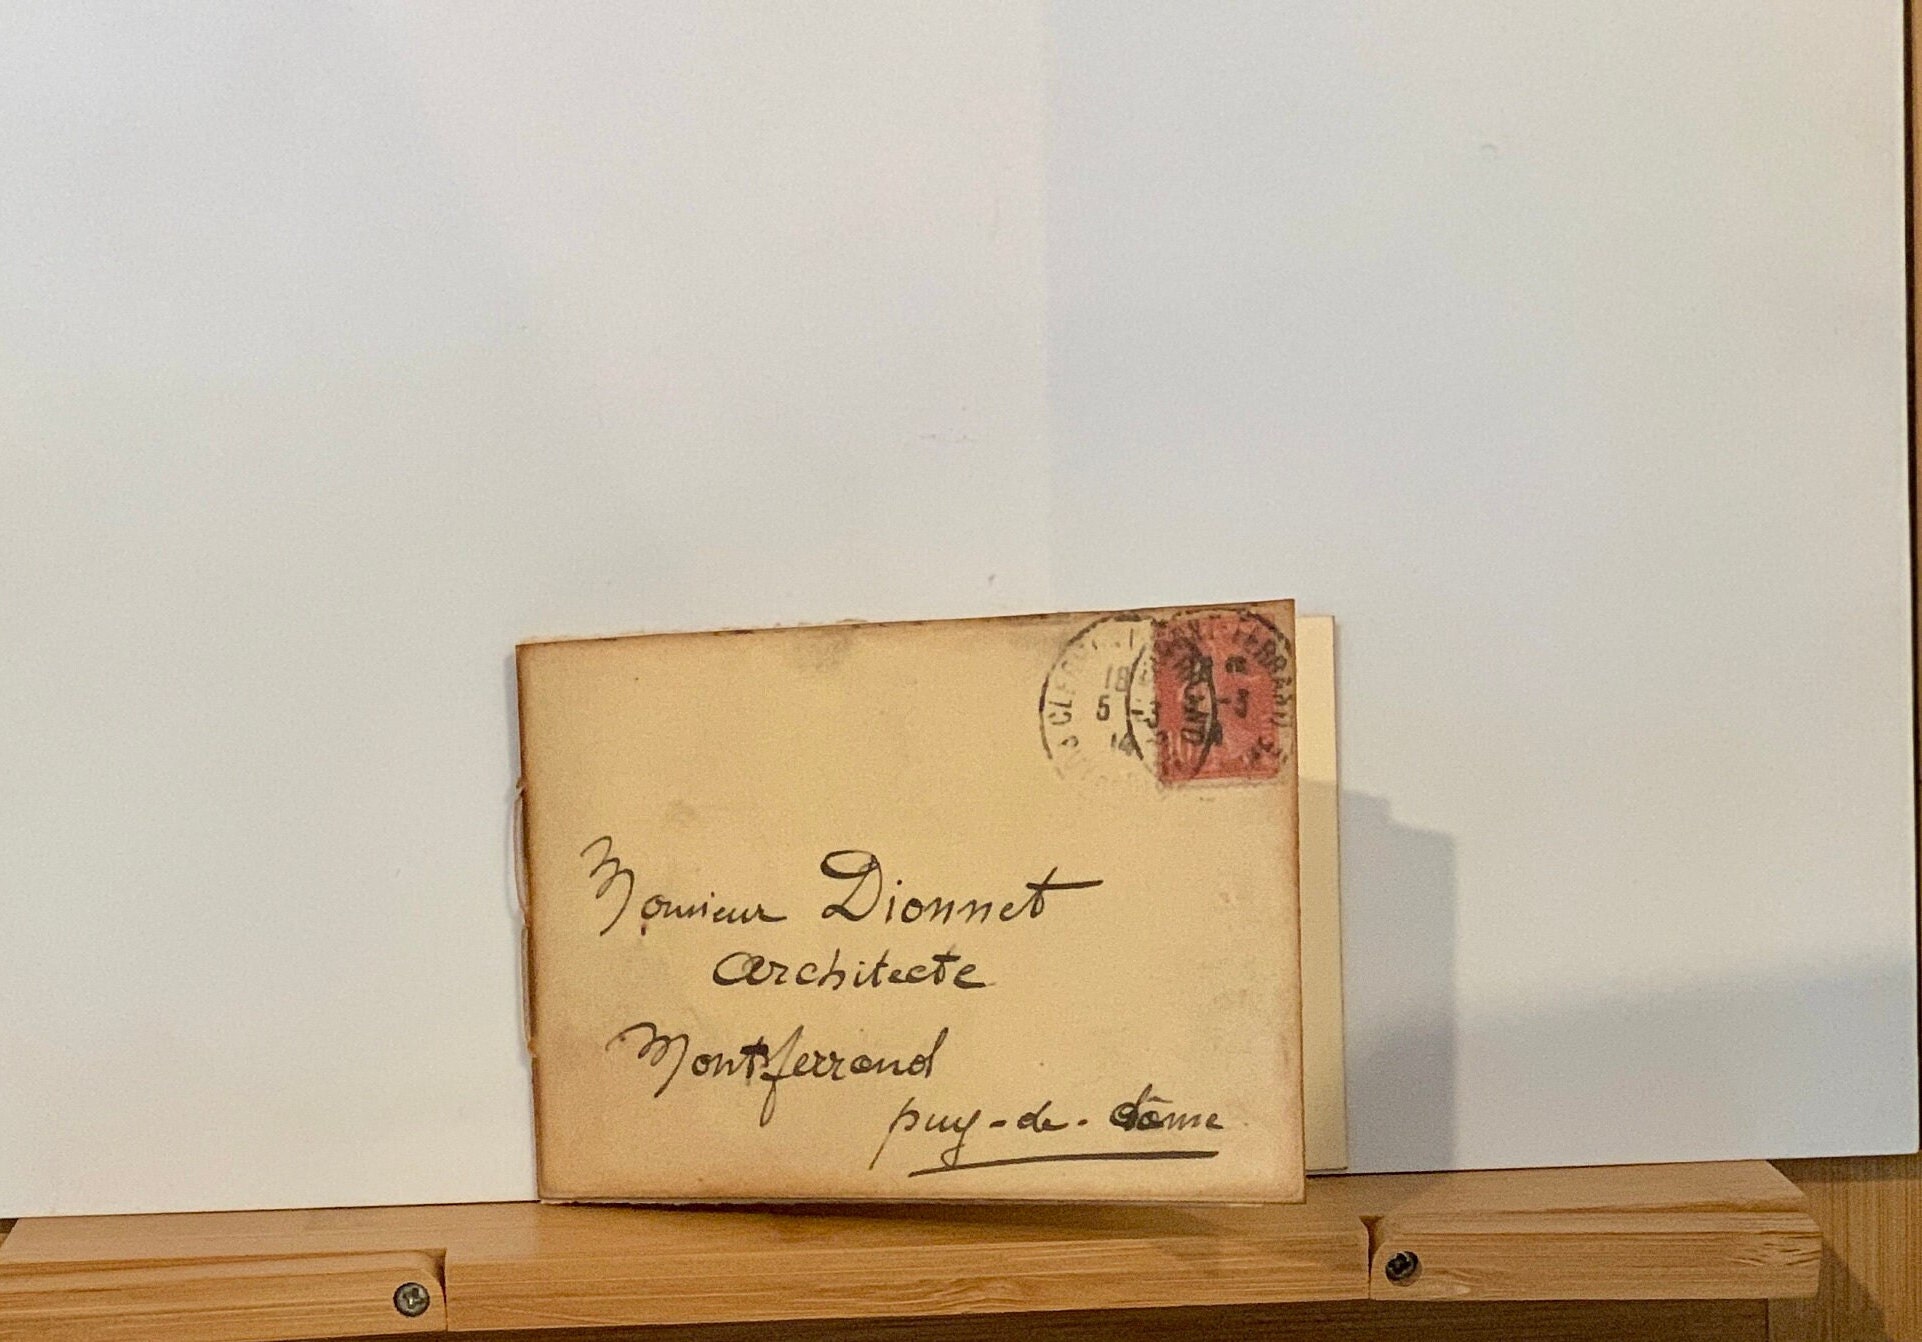 CLERMONT-FERRAND
18
5 -3
14
FERRAND
-3
Monsieur Dionnet
Architecte
Montferrand
puy-de-dôme